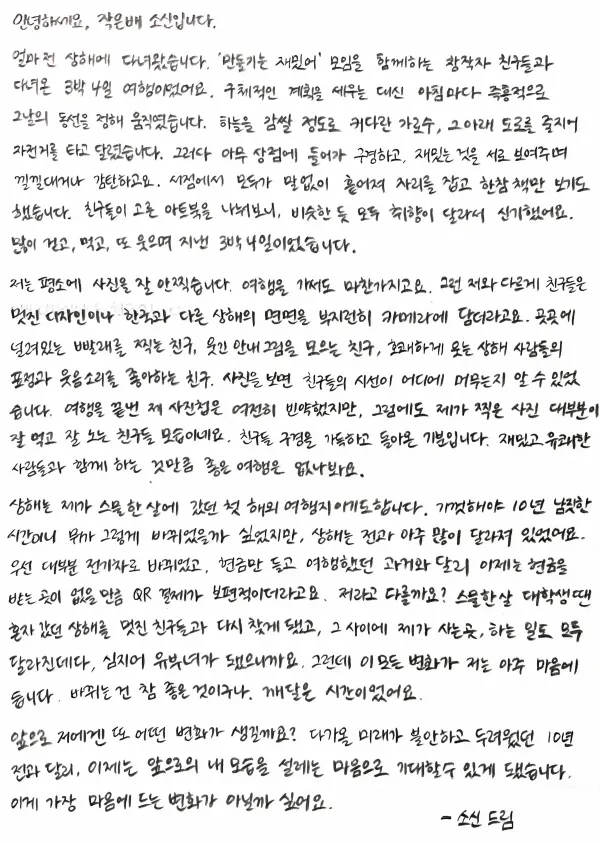 안녕하세요, 작은배 소신입니다.
얼마 전 상해에 다녀왔습니다. '만들기는 재밌어' 모임을 함께하는 창작자 친구들과
다녀온 3박 4일 여행이었어요. 구체적인 계획을 세우는 대신 아침마다 즉흥적으로
그날의 동선을 정해 움직였습니다. 하늘을 감쌀 정도로 커다란 가로수, 그 아래 도로를 줄지어
자전거를 타고 달렸습니다. 그러다 아무 상점에 들어가 구경하고, 재밌는 것을 서로 보여주며
낄낄대거나 감탄하고요. 서점에서 모두가 말 없이 흩어져 자리를 잡고 한참 책만 보기도
했습니다. 친구들이 고른 아트북을 나눠보니, 비슷한 듯 모두 취향이 달라서 신기했어요.
많이 걷고, 먹고, 또 웃으며 지낸 3박 4일이었습니다.
저는 평소에 사진을 잘 안 찍습니다. 여행을 가서도 마찬가지고요. 그런 저와 다르게 친구들은
멋진 디자인이나 한국과 다른 상해의 면면을 부지런히 카메라에 담더라고요. 곳곳에
널려있는 빨래를 찍는 친구, 웃긴 안내그림을 모으는 친구, 호쾌하게 웃는 상해 사람들의
표정과 웃음소리를 좋아하는 친구. 사진을 보면 친구들의 시선이 어디에 머무는지 알 수 있었
습니다. 여행을 끝낸 제 사진첩은 여전히 빈약했지만, 그럼에도 제가 찍은 사진 대부분이
잘 먹고 잘 노는 친구들 모습이네요. 친구들 구경을 가득하고 돌아온 기분입니다. 재밌고 유쾌한
사람들과 함께 하는 것만큼 좋은 여행은 없나봐요.
상해는 제가 스물한 살에 갔던 첫 해외 여행지이기도 합니다. 기껏해야 10년 남짓한
시간이니 뭐가 그렇게 바뀌었을까 싶었지만, 상해는 전과 아주 많이 달라져 있었어요.
우선 대부분 전기차로 바뀌었고, 현금만 들고 여행했던 과거와 달리 이제는 현금을
받는 곳이 없을 만큼 QR 결제가 보편적이더라고요. 저라고 다를까요? 스물한살 대학생 땐
혼자 갔던 상해를 멋진 친구들과 다시 찾게 됐고, 그 사이에 제가 사는 곳, 하는 일도 모두
달라진데다, 심지어 유부녀가 됐으니까요. 그런데 이 모든 변화가 저는 아주 마음에
듭니다. 바뀌는 건 참 좋은 것이구나. 깨달은 시간이었어요.
앞으로 저에겐 또 어떤 변화가 생길까요? 다가올 미래가 불안하고 두려웠던 10년
전과 달리, 이제는 앞으로의 내 모습을 설레는 마음으로 기대할 수 있게 됐습니다.
이게 가장 마음에 드는 변화가 아닐까 싶어요.
- 소신 드림